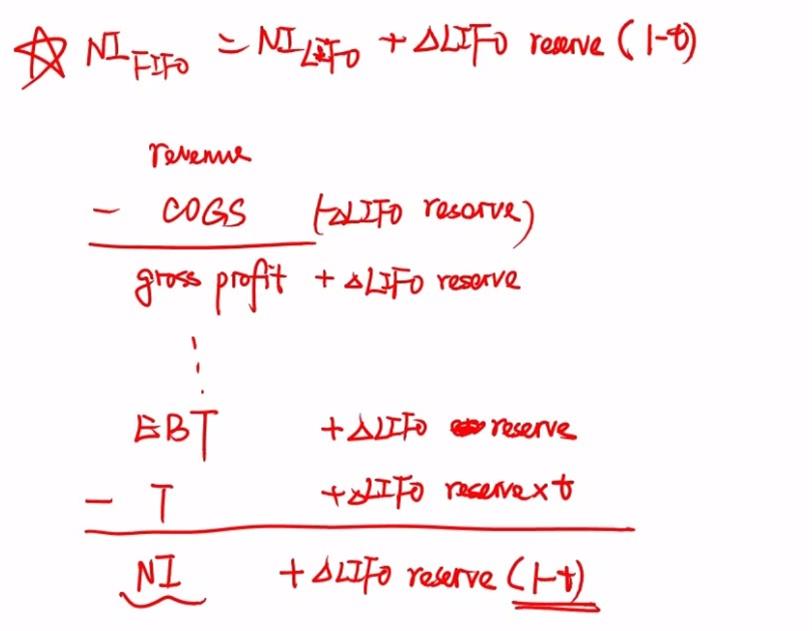 ☆ NI FIFO = NI LIFO + ΔLIFO reserve (1-t)
revenue
- COGS (-ΔLIFO reserve)
gross profit + ΔLIFO reserve
⋮
EBT + ΔLIFO reserve
- T + ΔLIFO reserve×t
NI + ΔLIFO reserve (1-t)